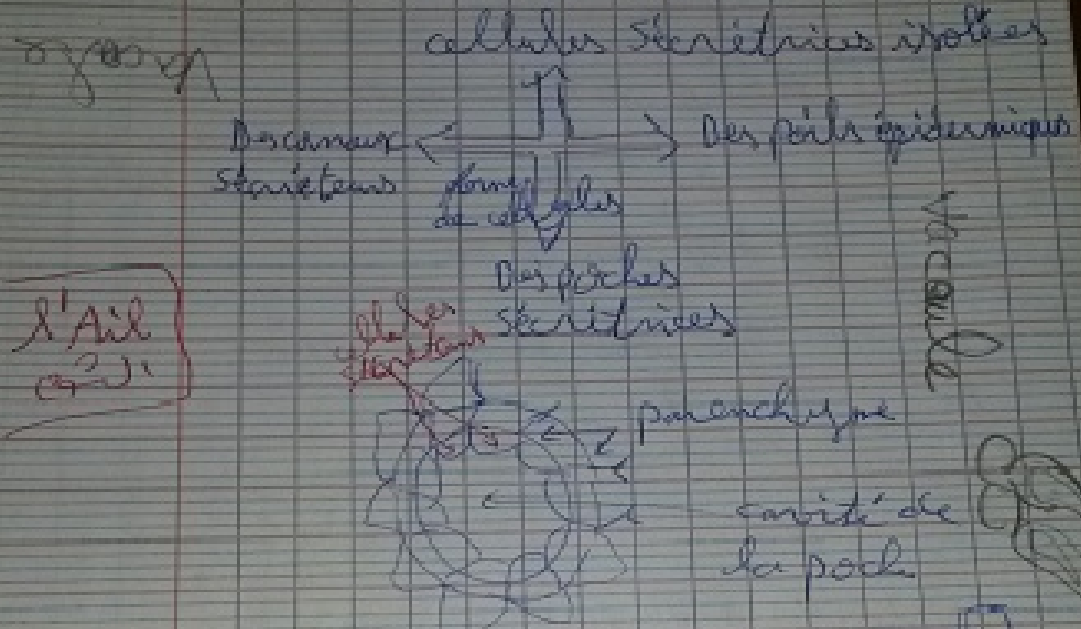 cellules sécrétrices isolées
Des canaux
sécréteurs
Des poils épidermiques
forme
de cellules
Des poches
sécrétrices
l'Ail
vacuole
parenchyme
cavité de
la poche